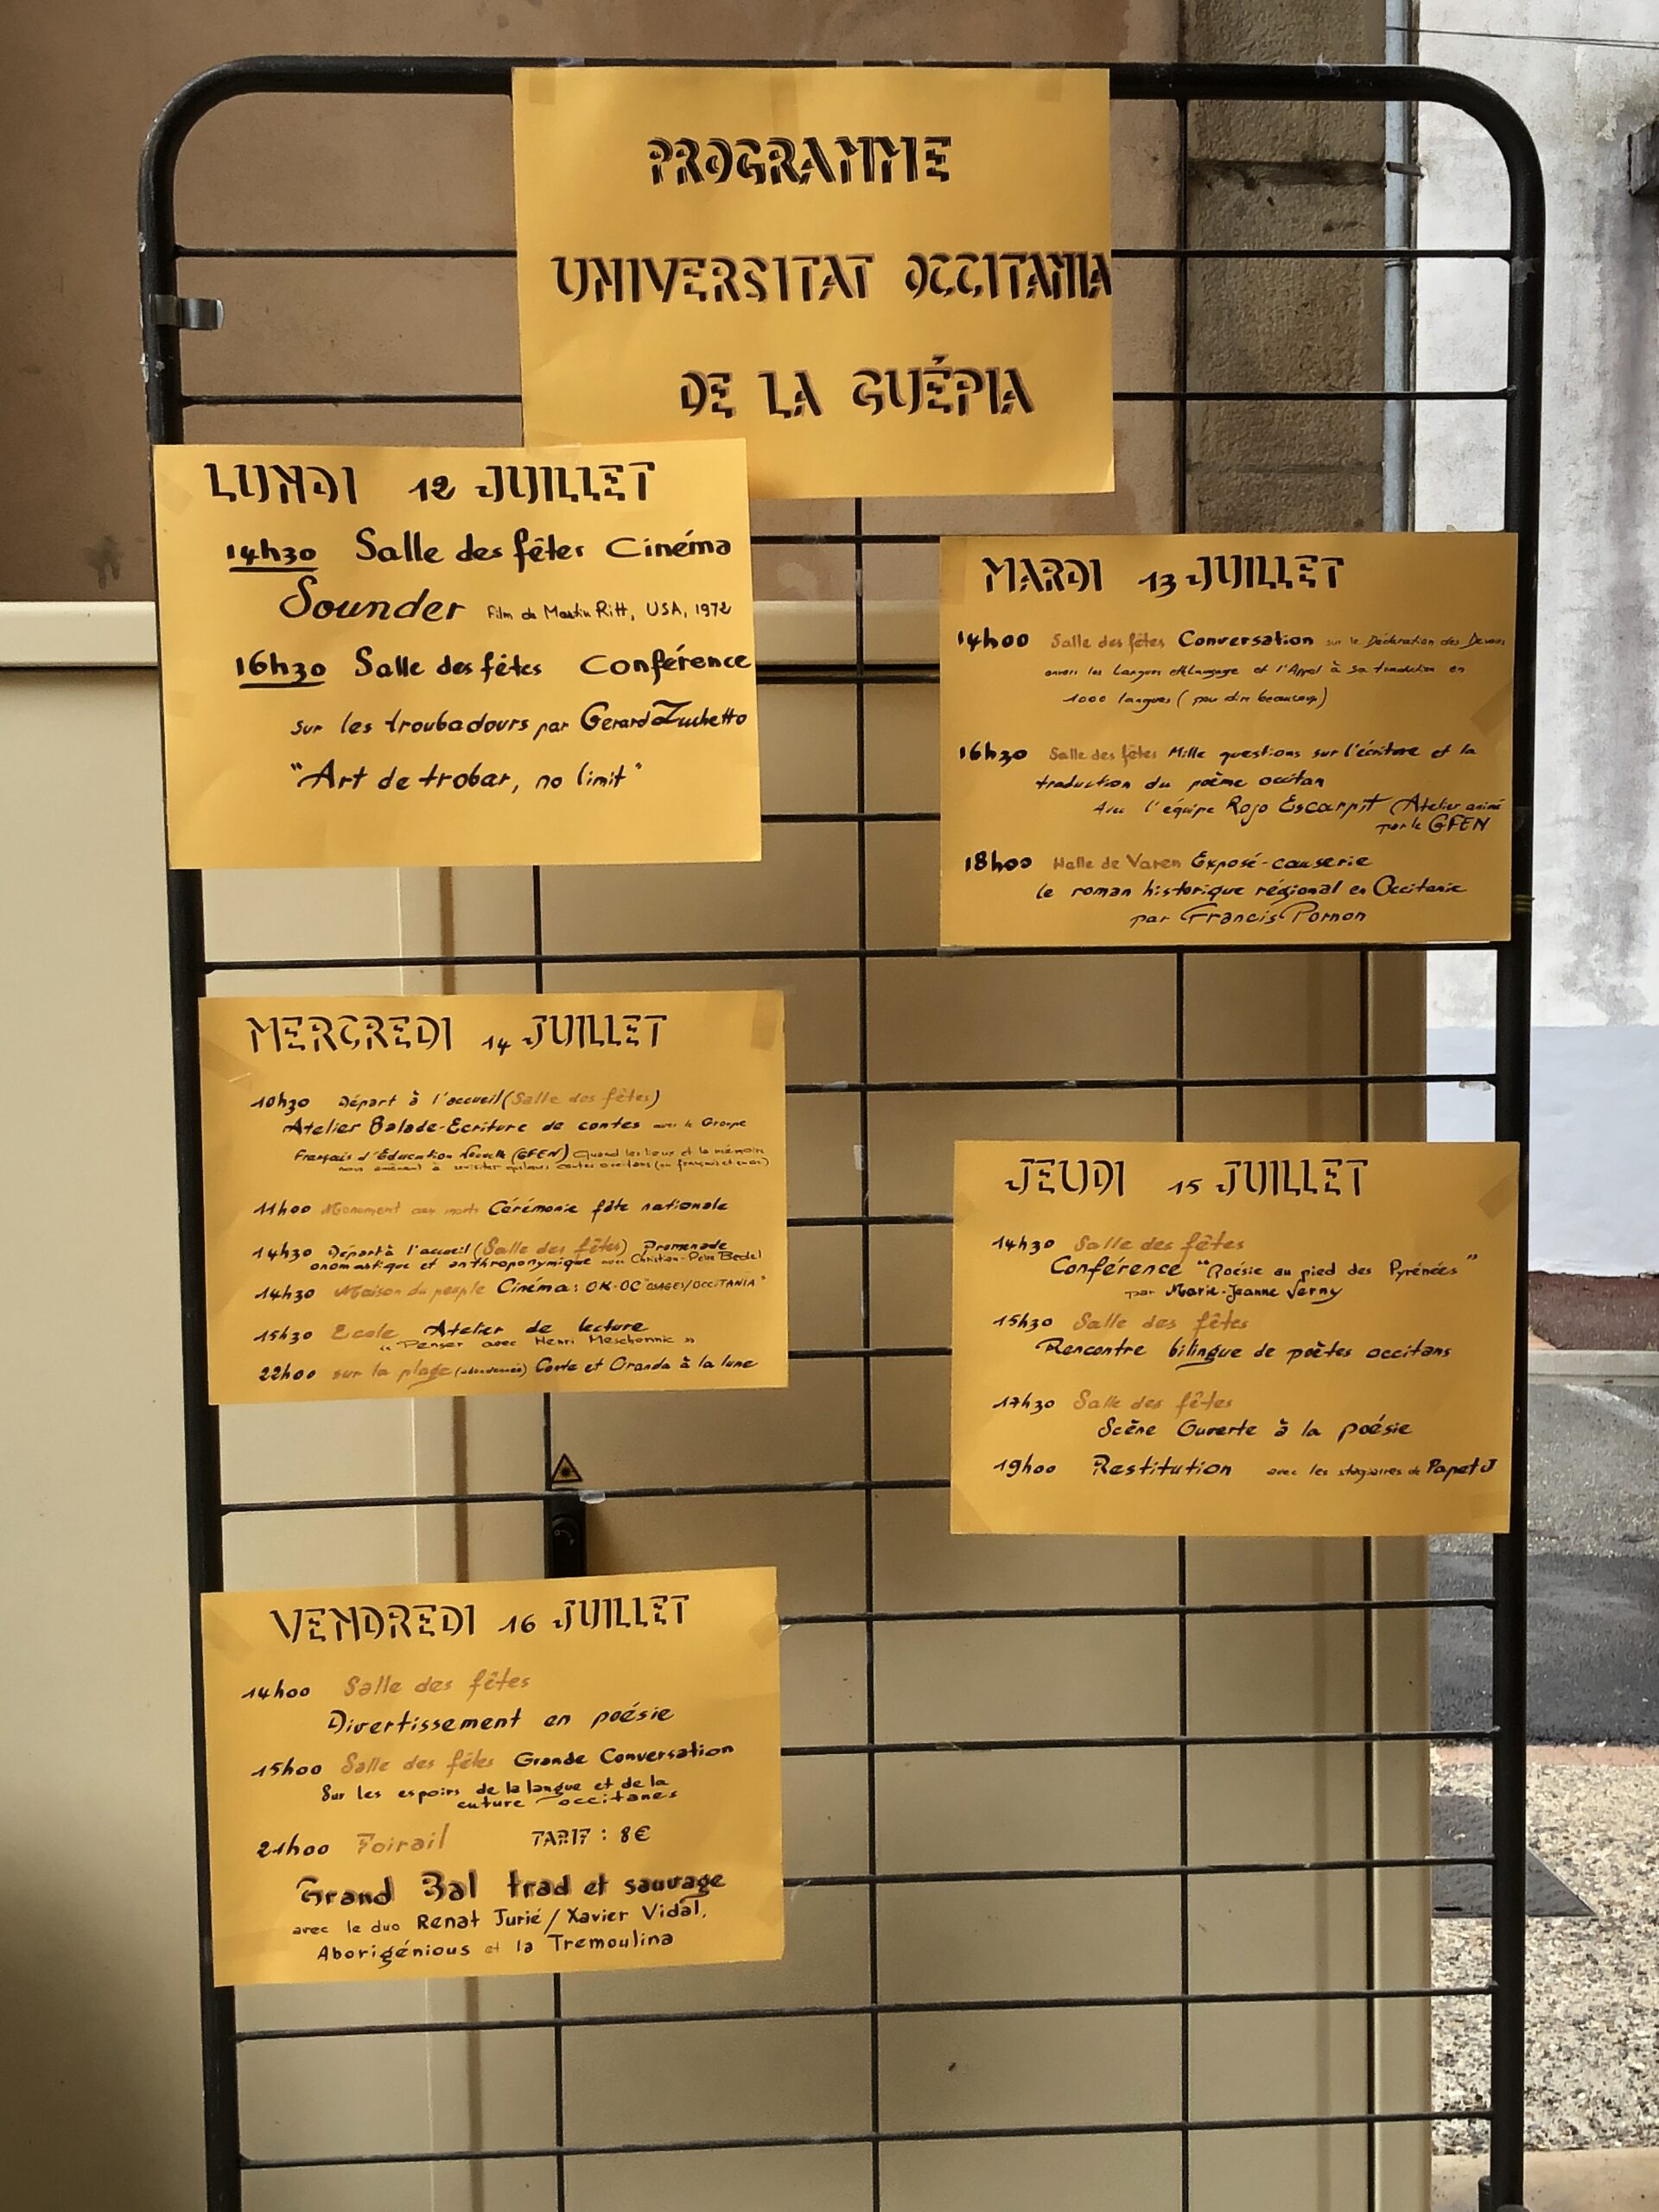 PROGRAMME
UNIVERSITAT OCCITANIA
DE LA GUÉPIA
LUNDI 12 JUILLET
14h30 Salle des fêtes Cinéma
Sounder Film de Martin Ritt, USA, 1972
16h30 Salle des fêtes Conférence
sur les troubadours par Gerard Zuchetto
"Art de trobar, no limit"
MARDI 13 JUILLET
14h00 Salle des fêtes Conversation sur la Déclaration des Devoirs
envers les Langues et Langage et l'Appel à sa traduction en
1000 langues (pour dire beaucoup)
16h30 Salle des fêtes Mille questions sur l'écriture et la
traduction du poème occitan
Avec l'équipe Rojo Escarpit (Atelier animé
par le GFEN
18h00 Halle de Varen Exposé-causerie
le roman historique régional en Occitanie
par Francis Pornon
MERCREDI 14 JUILLET
10h30 Départ à l'accueil (Salle des fêtes)
Atelier Balade-Ecriture de contes avec le Groupe
Français d'Éducation Nouvelle (GFEN) Quand les lieux et la mémoire
nous amènent à revisiter quelques contes occitans (en français et en oc)
11h00 Monument aux morts Cérémonie fête nationale
14h30 Départ à l'accueil (Salle des fêtes) Promenade
onomastique et anthroponymique avec Christian-Pèire Bedel
14h30 Maison du peuple Cinéma : OK-OC "OSAGES/OCCITANIA"
15h30 Ecole Atelier de lecture
"Penser avec Henri Meschonnic"
22h00 sur la plage (abandonnée) Conte et Oranda à la lune
JEUDI 15 JUILLET
14h30 Salle des fêtes
Conférence "Poésie au pied des Pyrénées"
par Marie-Jeanne Verny
15h30 Salle des fêtes
Rencontre bilingue de poètes occitans
17h30 Salle des fêtes
Scène Ouverte à la poésie
19h00 Restitution avec les stagiaires de Papet J
VENDREDI 16 JUILLET
14h00 Salle des fêtes
Divertissement en poésie
15h00 Salle des fêtes Grande Conversation
Sur les espoirs de la langue et de la
cuture occitanes
21h00 Foirail TARIF : 8€
Grand Bal trad et sauvage
avec le duo Renat Jurié / Xavier Vidal,
Aborigénious et la Tremoulina